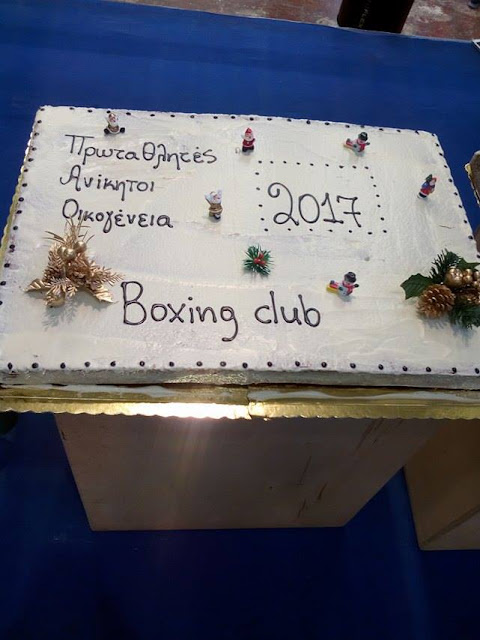 Πρωταθλητές
Ανίκητοι
Οικογένεια
2017
Boxing club